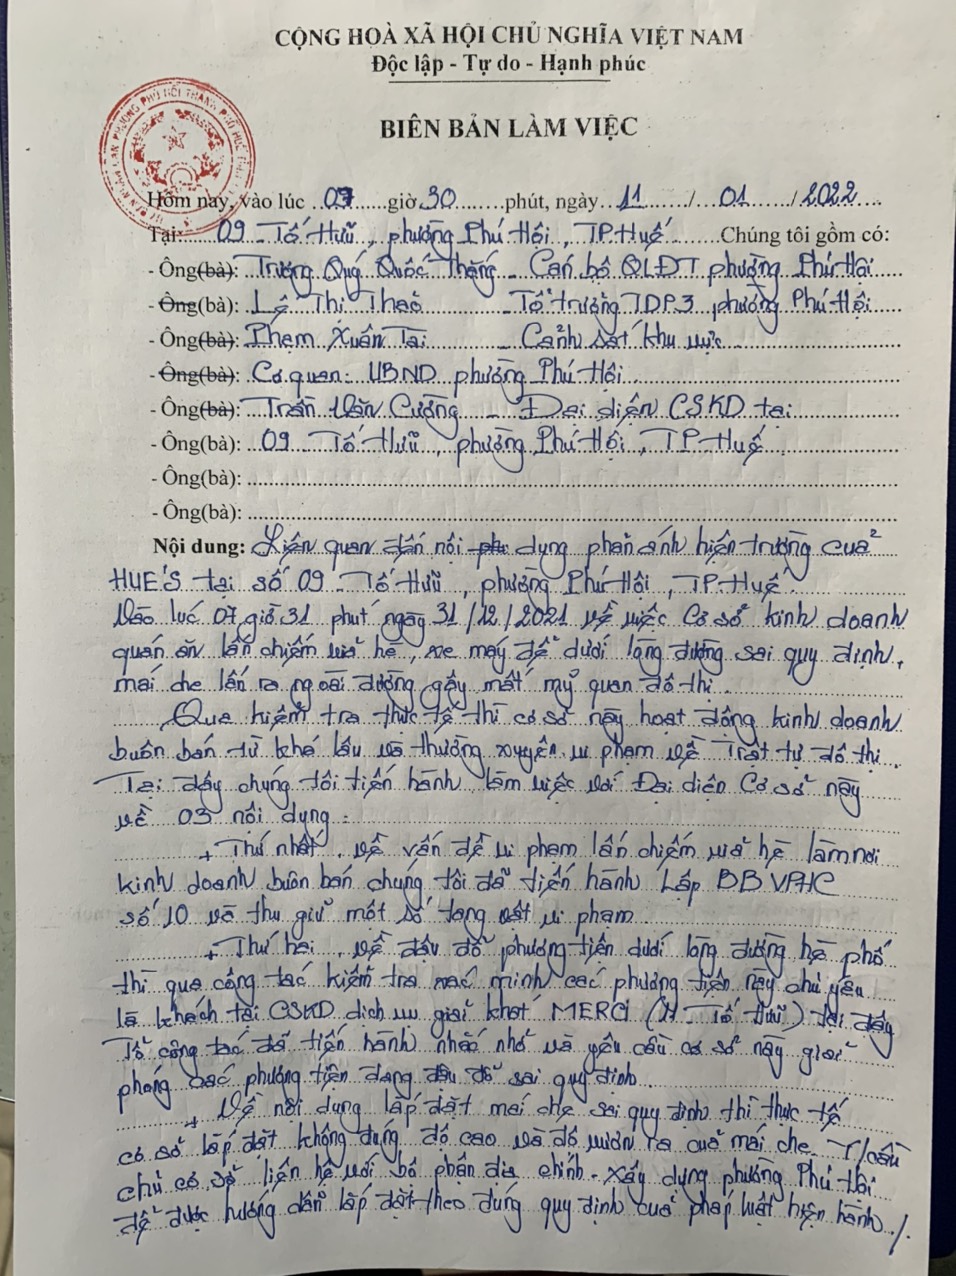 CỘNG HOÀ XÃ HỘI CHỦ NGHĨA VIỆT NAM
Độc lập - Tự do - Hạnh phúc
BIÊN BẢN LÀM VIỆC
Hôm nay, vào lúc 07 giờ 30 phút, ngày 11 / 01 / 2022
Tại: 09 - Tố Hữu, phường Phú Hội, TP. Huế Chúng tôi gồm có:
- Ông(bà): Trương Quý Quốc Thắng - Cán bộ QLĐT phường Phú Hội
- Ông(bà): Lê Thị Thảo - Tổ trưởng TDP3, phường Phú Hội
- Ông(bà): Phạm Xuân Tài - Cảnh sát khu vực
- Ông(bà): Cơ quan: UBND phường Phú Hội
- Ông(bà): Trần Văn Cường - Đại diện CSKD tại
- Ông(bà): 09 Tố Hữu, phường Phú Hội, TP. Huế
- Ông(bà):
- Ông(bà):
Nội dung: Liên quan đến nội dung phản ánh hiện trường của
HUE'S tại số 09 - Tố Hữu, phường Phú Hội, TP. Huế
Vào lúc 07 giờ 31 phút ngày 31/12/2021 về việc Cơ sở kinh doanh
quán ăn lấn chiếm vỉa hè, xe máy để dưới lòng đường sai quy định,
mái che lấn ra ngoài đường gây mất mỹ quan đô thị.
Qua kiểm tra thực tế thì cơ sở này hoạt động kinh doanh
buôn bán từ khá lâu và thường xuyên vi phạm về Trật tự đô thị.
Tại đây chúng tôi tiến hành làm việc với Đại diện Cơ sở này
về 03 nội dung:
+ Thứ nhất, về vấn đề vi phạm lấn chiếm vỉa hè làm nơi
kinh doanh buôn bán chúng tôi đã tiến hành Lập BB VPHC
số 10 và thu giữ một số tang vật vi phạm
+ Thứ hai, về đậu đỗ phương tiện dưới lòng đường hè phố
thì qua công tác kiểm tra xác minh các phương tiện này chủ yếu
là khách tại CSKD dịch vụ giải khát MERCI (11 - Tố Hữu) tại đây
Tổ công tác đã tiến hành nhắc nhở và yêu cầu cơ sở này giải
phóng các phương tiện đang đậu đỗ sai quy định
+ Về nội dung lắp đặt mái che sai quy định thì thực tế
cơ sở lắp đặt không đúng độ cao và độ vươn ra của mái che. Y/cầu
chủ cơ sở liên hệ với bộ phận địa chính - xây dựng phường Phú Hội
để được hướng dẫn lắp đặt theo đúng quy định của pháp luật hiện hành./.